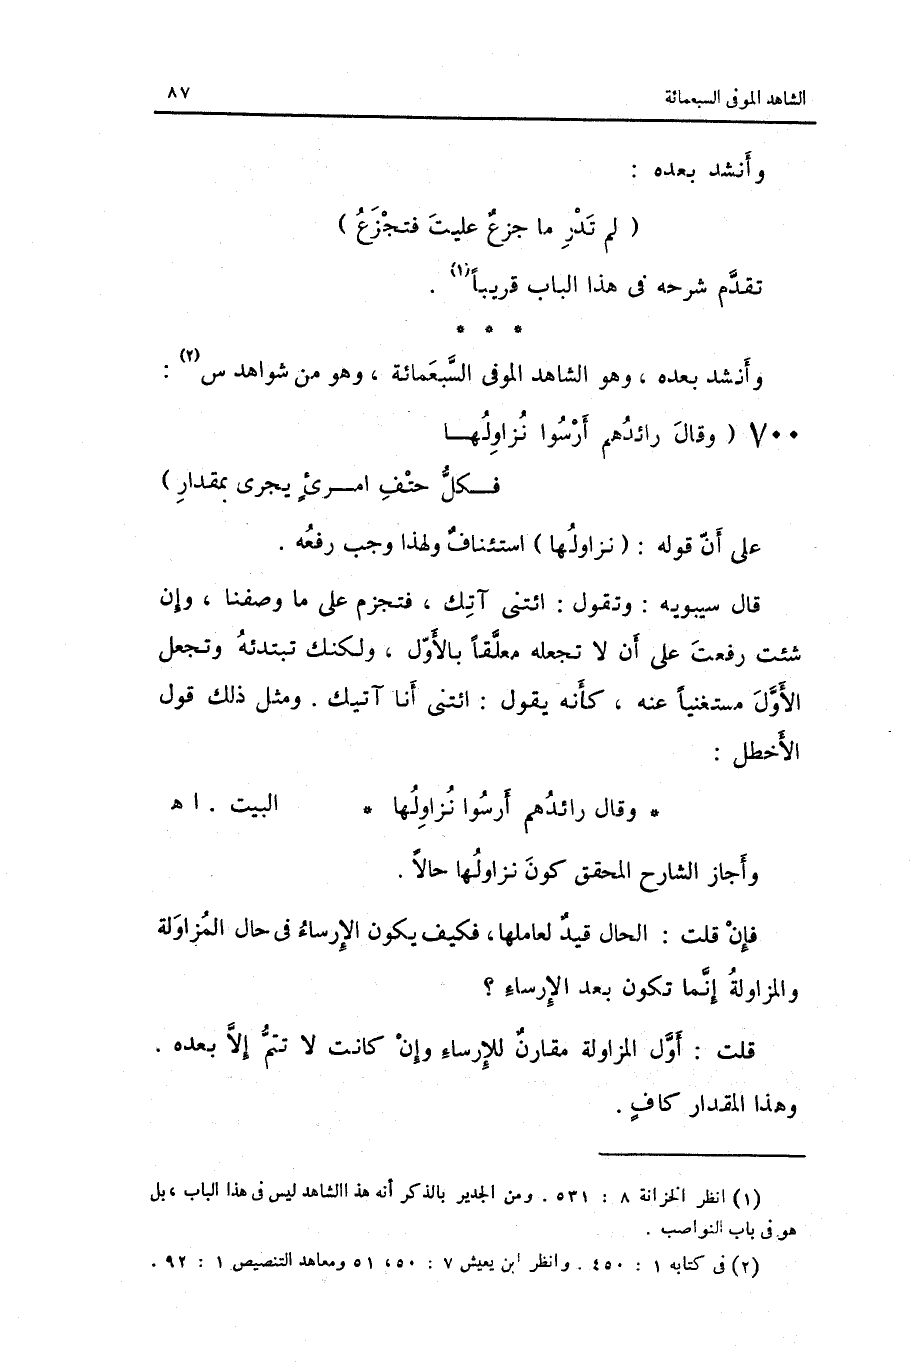 الشاهد الموفى السبعمائة ٨٧
وأَنشد بعده :
( لم تَدْرِ ما جزعٌ عليتَ فتجْزَعُ )
تقدَّم شرحه فى هذا الباب قريباً(١) .
* * *
وأَنشد بعده ، وهو الشاهد الموفى السَّبعَمائة ، وهو من شواهد س(٢) :
٧٠٠ ( وقالَ رائدُهم أَرْسُوا نُزاوِلُهـا
فـكلُّ حتْفِ امـرئٍ يجرى بمقدارِ )
على أَنّ قوله : ( نزاولُها ) استئنافٌ ولهذا وجب رفعُه .
قال سيبويه : وتقول : ائتنى آتِك ، فتجزم على ما وصفنا ، وإن
شئت رفعتَ على أَن لا تجعله معلَّقاً بالأَوّل ، ولكنك تبتدئهُ وتجعل
الأَوَّلَ مستغنياً عنه ، كأَنه يقول : ائتنى أَنا آتيك . ومثل ذلك قول
الأَخطل :
* وقال رائدُهم أَرسُوا نُزاوِلُها * البيت . ا هـ
وأَجاز الشارح المحقق كونَ نزاولُها حالاً .
فإِنْ قلت : الحال قيدٌ لعاملها، فكيف يكون الإِرساءُ فى حال المُزاوَلة
والمزاولةُ إِنَّما تكون بعد الإِرساءِ ؟
قلت : أَوَّل المزاولة مقارنٌ للإِرساءِ وإِنْ كانت لا تتمُّ إِلاَّ بعده .
وهذا المقدار كافٍ .
(١) انظر الخزانة ٨ : ٥٣١ . ومن الجدير بالذكر أنه هذ االشاهد ليس فى هذا الباب ، بل
هو فى باب النواصب .
(٢) فى كتابه ١ : ٤٥٠ . وانظر ابن يعيش ٧ : ٥٠، ٥١ ومعاهد التنصيص ١ : ٩٢ .